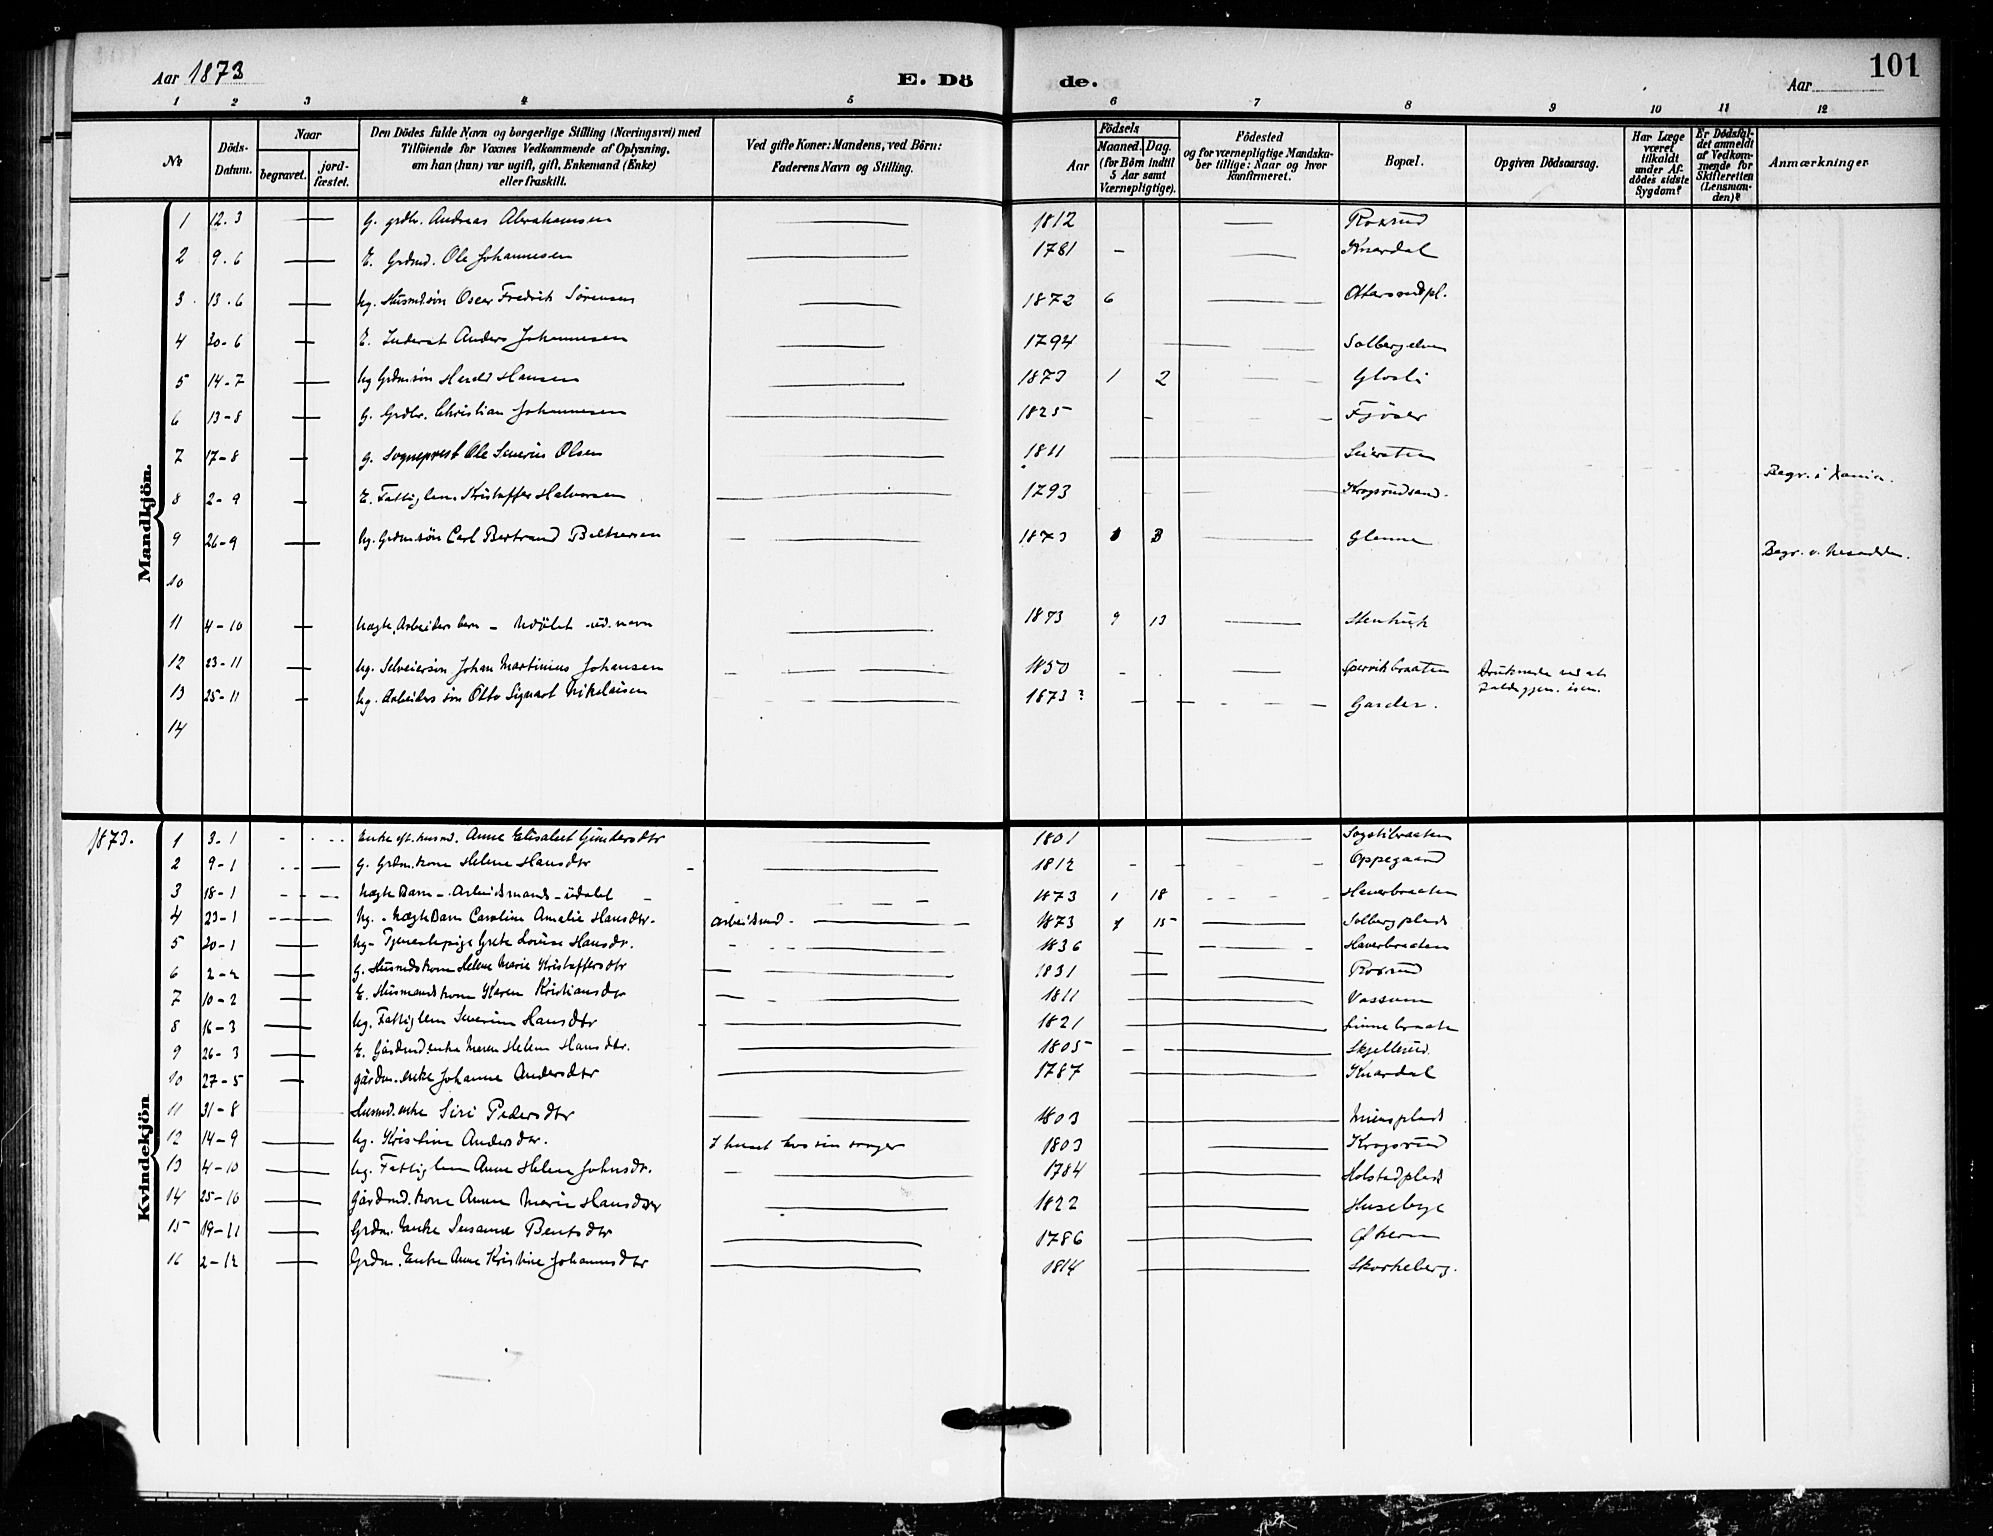 101
Aar 1873 E. Dö de. Aar
1 2 3 4 5 6 7 8 9 10 11 12
№
Döds-Datum.
Naar
begravet.
jord-fæstet.
Den Dödes fulde Navn og borgerlige Stilling (Næringsvei) med
Tilföiende for Voxnes Vedkommende af Oplysning.
om han (hun) var ugift, gift, Enkemand (Enke)
eller fraskilt.
Ved gifte Koner: Mandens, ved Börn:
Faderens Navn og Stilling.
Födsels
Aar
Maaned. Dag.
(for Börn indtil
5 Aar samt
Værnepligtige).
Födested
og for værnepligtige Mandska-
ber tillige: Naar og hvor
Konfirmeret.
Bopæl.
Opgiven Dödsaarsag.
Har Læge
været
tilkaldt
under Af-
dödes sidste
Sygdom?
Er Dödsfal-
det anmeldt
af Vedkom-
mende for
Skifteretten
(Lensman-
den)?
Anmærkninger
Mandkjön.
1 12.3 — g. grdbr. Andreas Abrahamsen — 1812 —
2 9.6 — E. Grdmd. Ole Johannesen — 1781 - — Knardal
3 13.6 — ug. Husmdsön Oscar Fredrik Sörensen — 1872 6 —
4 20-6 — E. Anders Johannesen — 1794 — Solbergelven
5 14-7 — ug Grdmsön Hansen — 1873 1 2 —
6 13-8 — g. Grdbr. Christian Johannesen — 1825 - - Fjöser
7 17-8 — g. Sogneprest Ole Severius Olsen — 1811 — Seiersten Begr. i Xania.
8 2-9 — E. Fattiglem Kristoffer Halvorsen — 1793 —
9 26-9 — ug. Grdmsön Carl Bertrand — 1873 3 — Glenne
10
11 4-10 — uægte Arbeiders barn — udöbt ud. navn — 1873 9 13 —
12 23-11 — ug. Selveiersön Johan Martinius Johansen — 1850 -
13 25-11 — ug. Arbeiders sön Otto Sigvart Nikolaisen — 1873? — Garder.
14
1873.
Kvindekjön
1 3-1 Enke eft. husmd. Anne Elisabet Gundersdtr — 1801 — Sogstibraaten
2 9-1 — g. Grdm. kone Helene Hansdtr — 1812 - - - Oppegaard
3 18-1 — uægte Barn — Arbeidsmands — udøbt — 1873 1 18 Haverbraaten
4 23-1 — ug. - uægte Barn Caroline Amalie Hansdtr. Arbeidsmd. — 1873 15 — Solbergplads
5 20-1 — ug - Tjenestepige Grete Lovise Hansdtr. — 1836 — Haverbraaten
6 2-2 — g. Husmdskone Helene Marie Kristoffersdtr — 1831 —
7 10-2 — E. Husmandskone Karen Kristiansdtr — 1811 — Vassum
8 16-3 — ug. Fattiglem Severine Hansdtr — 1821 —
9 26-3 — E. Gårdmd. enke Maren Helene Hansdtr. — 1805 — Skjellerud.
10 27-5 — gårdm. enke Johanne Andersdtr — 1787 — Knardal
11 31-8 Husmd. enke Siri Pedersdtr — 1803 —
12 14-9 — ug. Kristine Andersdtr. I huset hos sin svoger 1803 — Krogsrud
13 4-10 — ug. Fattiglem Anne Helene Johnsdtr. — 1784 — Holstadplads
14 25-10 — Gårdmd. kone Anne Marie Hansdtr — 1822 — Husebye
15 19-11 — Grdm. Enke Susanne Bentsdtr — 1786 —
16 2-12 — Grdm. Enke Anne Kristine Johannesdtr — 1814 — Skorkeberg.